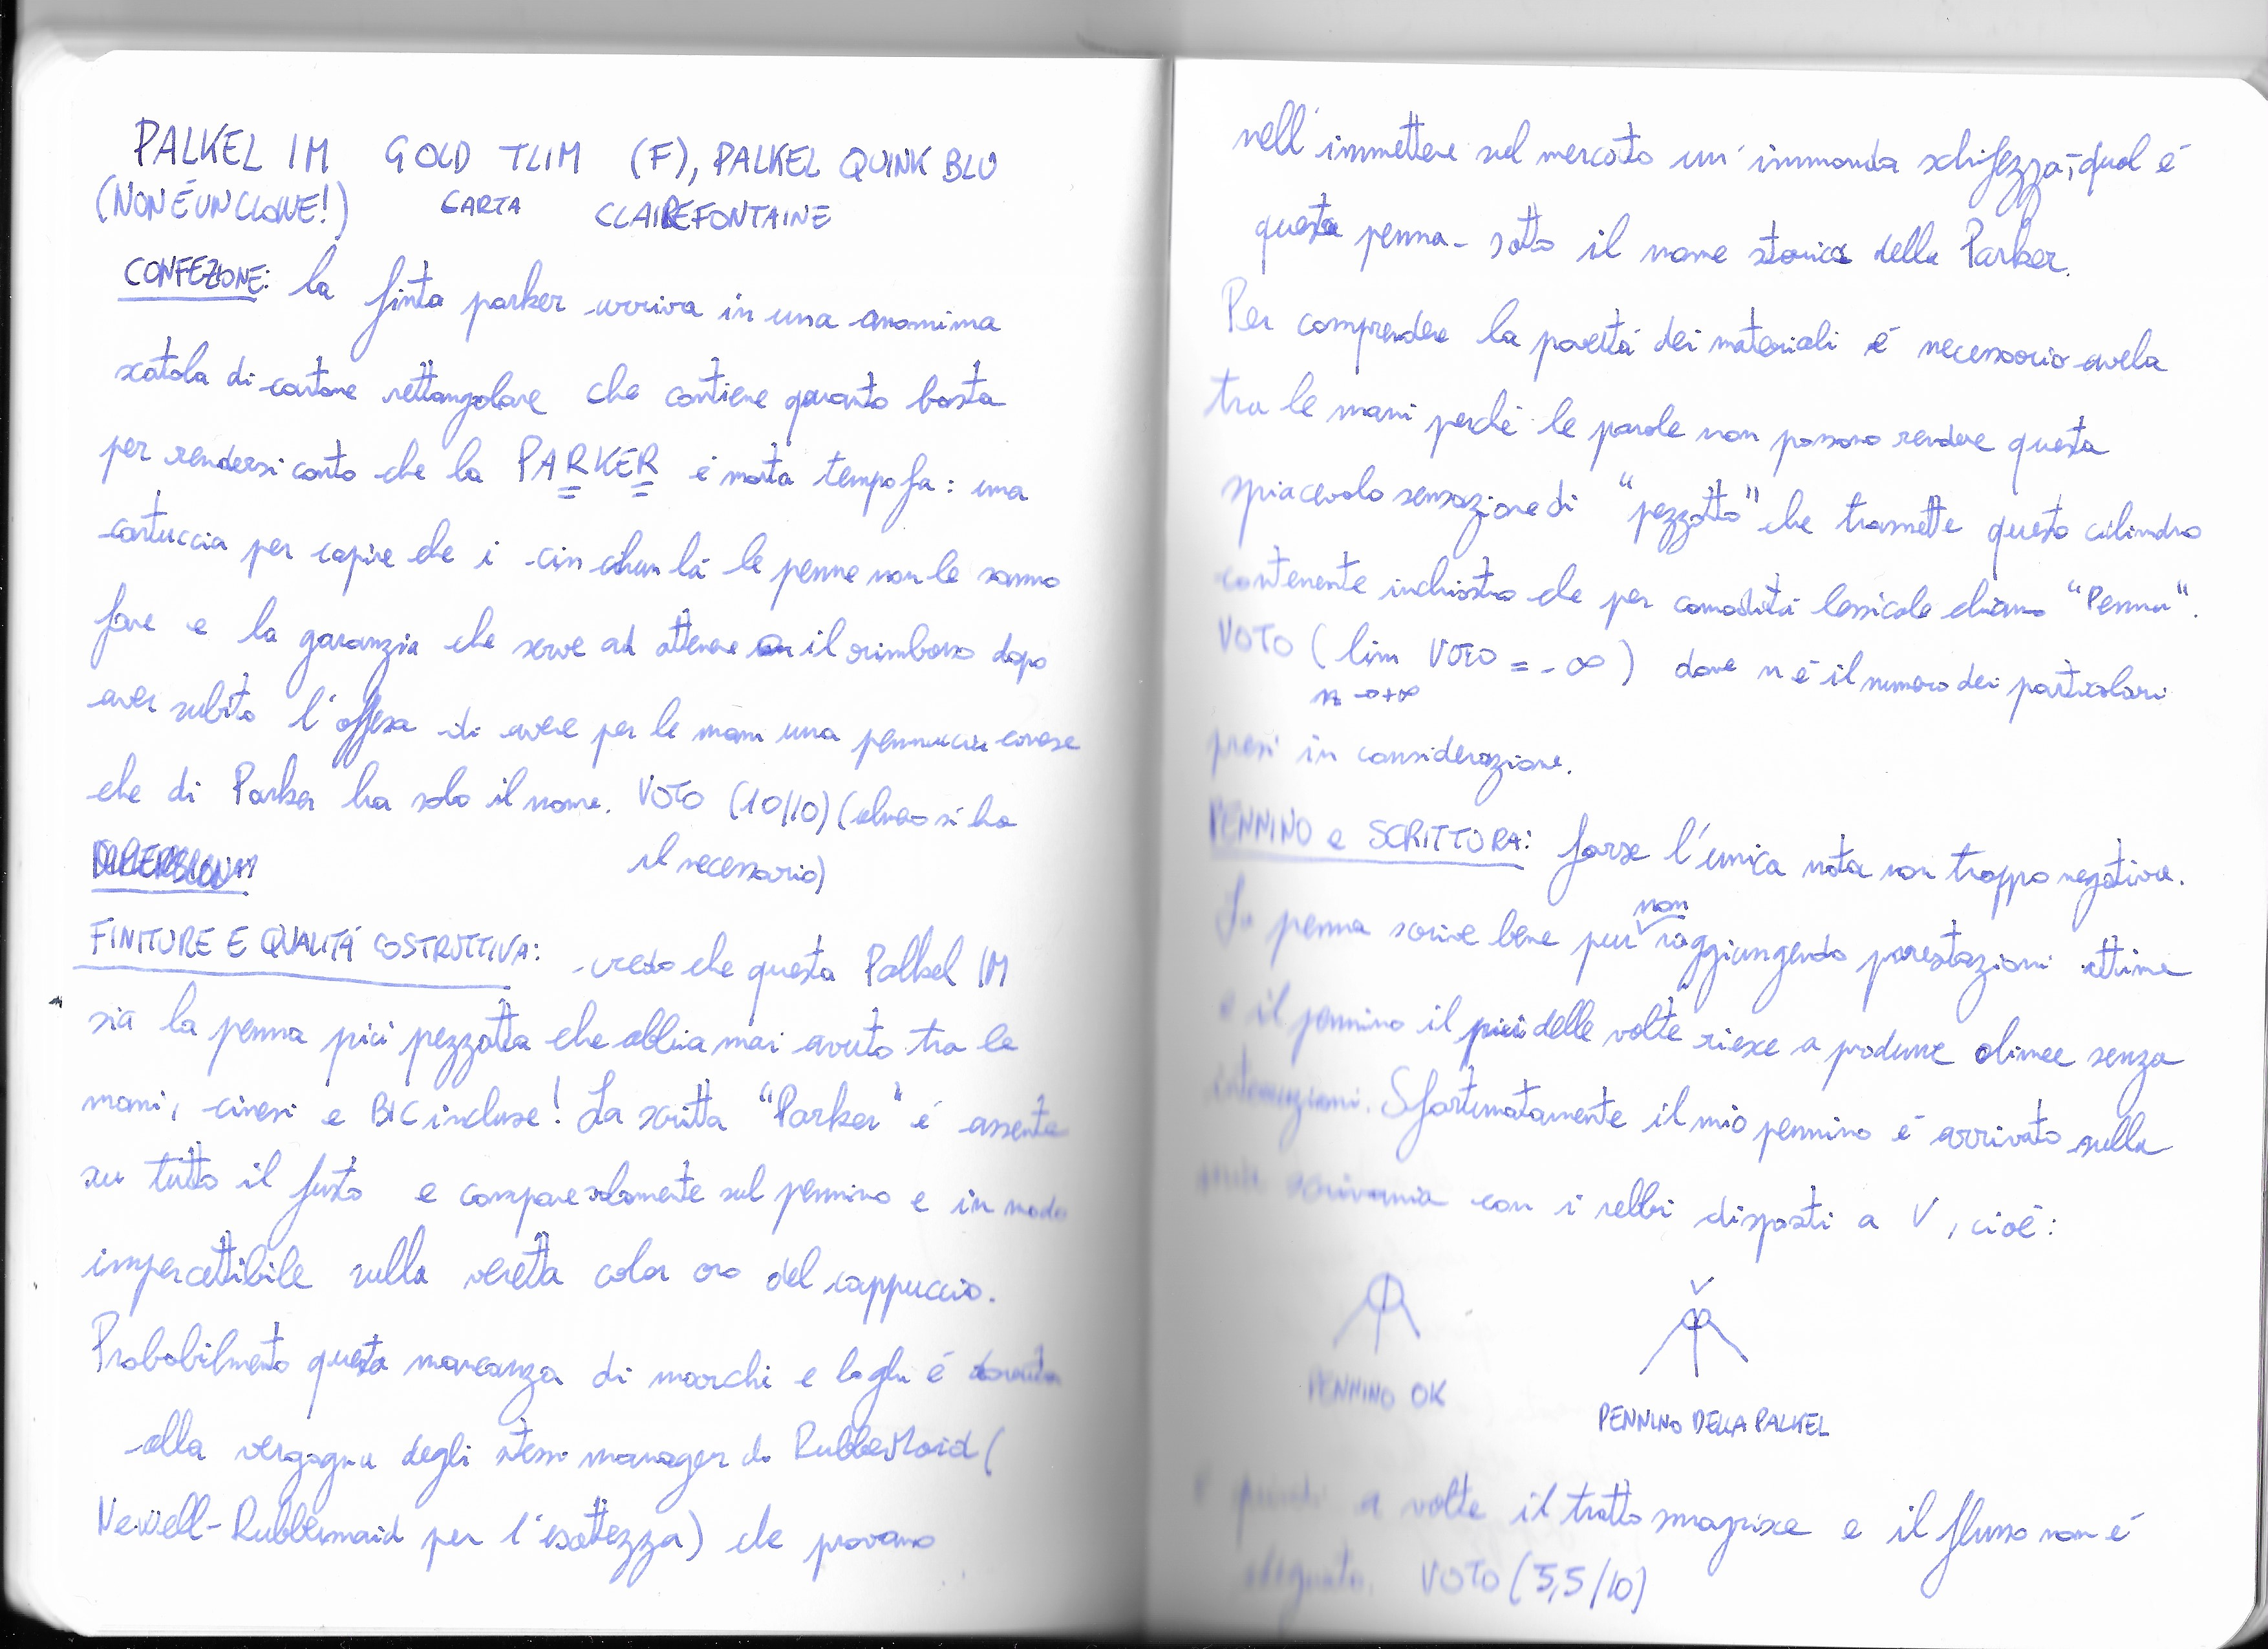 PALKEL IM GOLD TLIM (F), PALKEL QUINK BLU
(NON È UN CLONE!) CARTA CLAIREFONTAINE
CONFEZIONE: la finta parker arriva in una anonima
scatola di cartone rettangolare che contiene quanto basta
per rendersi conto che la PARKER è morta tempo fa: una
cartuccia per capire che i cin chun là le penne non le sanno
fare e la garanzia che serve ad ottenere il rimborso dopo
aver subito l'offesa di avere per le mani una pennuccia cinese
che di Parker ha solo il nome. VOTO (10/10) (almeno si ha
il necessario)
FINITURE E QUALITÀ COSTRUTTIVA: credo che questa Palkel IM
sia la penna più pezzotta che abbia mai avuto tra le
mani, cinesi e BIC incluse! La scritta "Parker" è assente
su tutto il fusto e compare solamente sul pennino e in modo
impercettibile sulla veretta color oro del cappuccio.
Probabilmente questa mancanza di marchi e loghi è dovuta
alla vergogna degli stessi manager di (
Newell-Rubbermaid per l'esattezza) che provano
nell'immettere sul mercato un'immonda schifezza, qual è
questa penna - sotto il nome storico della Parker.
Per comprendere la povertà dei materiali è necessario averla
tra le mani perché le parole non possono rendere questa
spiacevole sensazione di "pezzotto" che trasmette questo cilindro
contenente inchiostro che per comodità lessicale chiamo "Penna".
VOTO (lim VOTO = -∞) dove n è il numero dei particolari
n→+∞
presi in considerazione.
PENNINO e SCRITTURA: forse l'unica nota non troppo negativa.
non
La penna scrive bene pur raggiungendo prestazioni ottime
e il pennino il più delle volte riesce a produrre linee senza
interruzioni. Sfortunatamente il mio pennino è arrivato sulla
mia scrivania con i rebbi disposti a V, cioè:
PENNINO OK
PENNINO DELLA PALKEL
e quindi a volte il tratto smagrisce e il flusso non è
adeguato. VOTO (5,5/10)